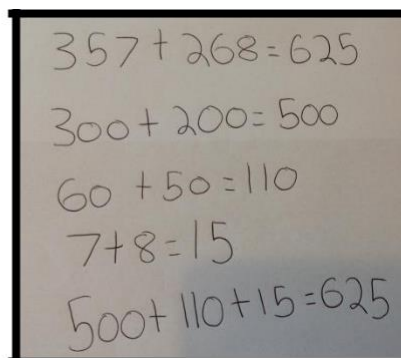 357+268=625
300+200=500
60+50=110
7+8=15
500+110+15=625